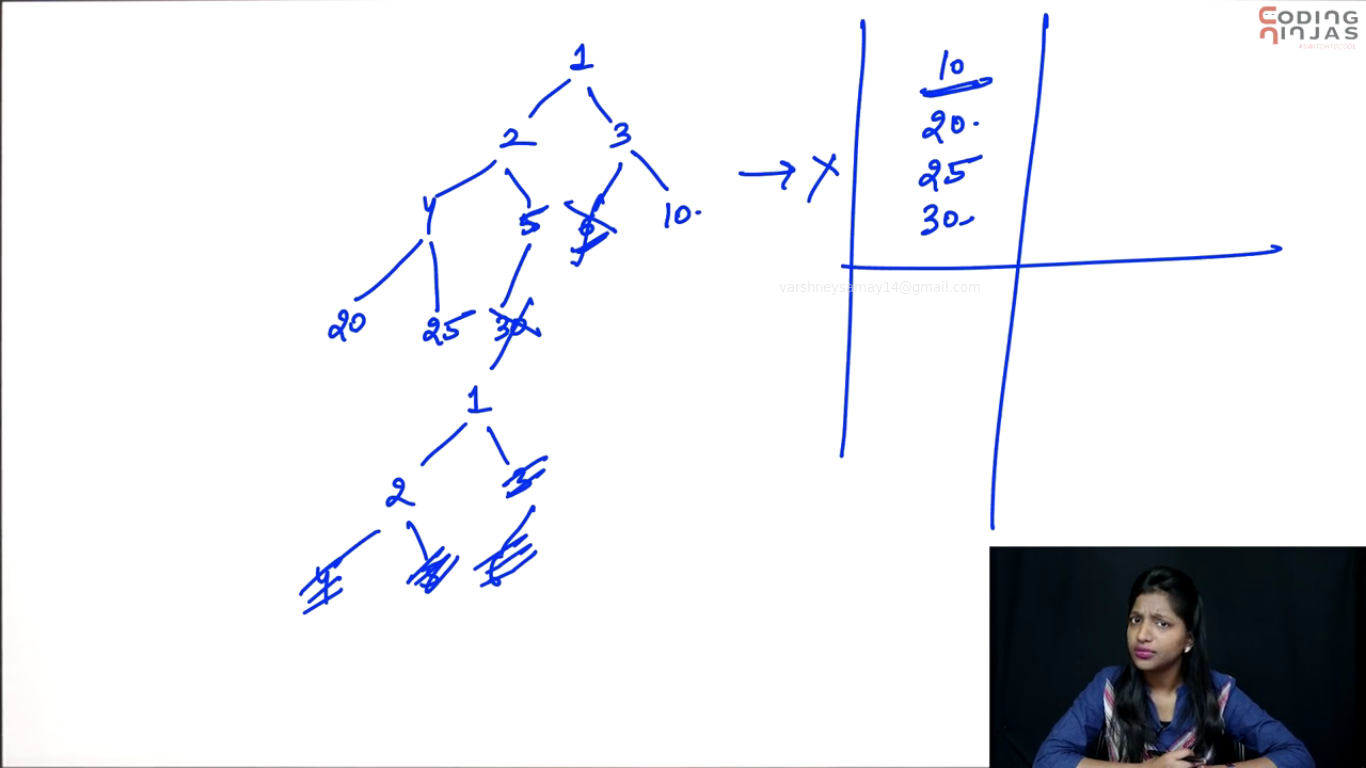 CODING
NINJAS
#SWITCHTOCODE
1
2 3
4 5 6 10.
20 25 30
10
20.
25
30
X
varshneysamay14@gmail.com
1
2 3
4